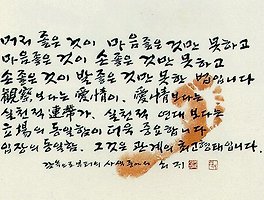 머리 좋은 것이 마음 좋은 것만 못하고
마음 좋은 것이 손 좋은 것만 못하고
손 좋은 것이 발 좋은 것만 못한 법입니다
觀察보다는 愛情이, 愛情보다는
실천적 連帶가, 실천적 연대보다는
立場의 동일함이 더욱 중요합니다
입장의 동일함, 그것은 관계의 최고형태입니다